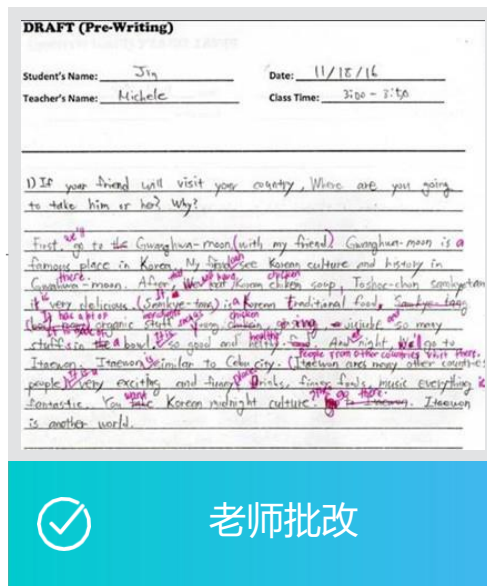 DRAFT (Pre-Writing)
Student's Name: Jin Date: 11/18/16
Teacher's Name: Michele Class Time: 3:00 - 3:50
1) If your friend will visit your country, Where are you going
to take him or her? Why?
First we'll go to the Gwanghwa-moon (with my friend) Gwanghwa-moon is a
famous place in Korea. My friend can see Korean culture and history in
Gwanghwa-moon. there. After, We will have eat Korean chicken soup, Toshoc-chon samkyetang
it is very delicious. (Samkye-tang) It is a Korean traditional food,
It has a lot of organic stuff young chicken, so many
stuffs in the a bowl. It's so good and healthy food. And night, We'll go to
Itaewon. Itaewon is similar to Cebu city. (Itaewon many other countries
People from other countries visit there.
people) It is very exciting and funny place. Drinks, finger foods, music everything is
fantastic. You want take Korean midnight culture. go there. to Itaewon. Itaewon
is another world.
老师批改